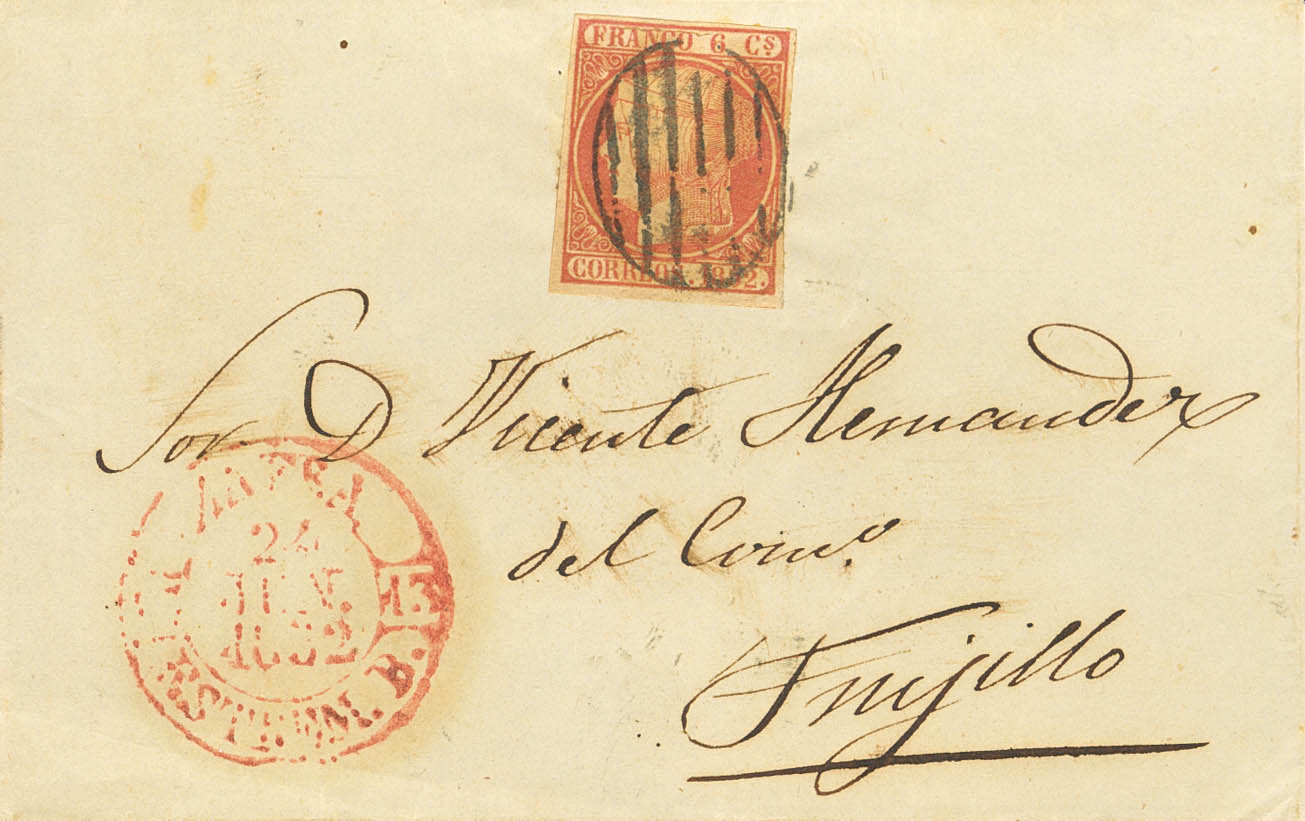 FRANCO 6 Cs
CORREOS. 1852.
Sor. D Vicente Hernandez
del Como.
Trujillo
ZAFRA
24
JUN.
1852
ESTREM. B.